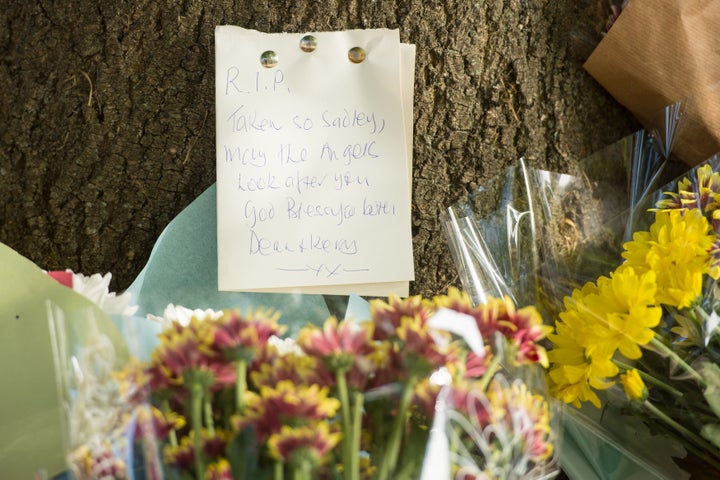 R.I.P.
Taken so sadley,
may the Angels
Look after you
God Bless you both,
Dean & Kerry
xx